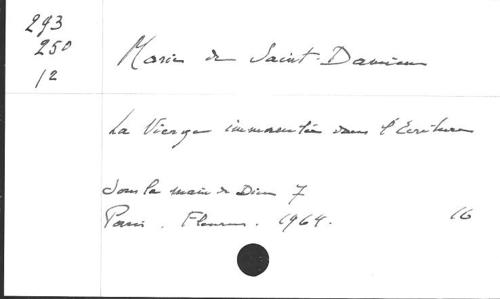 293
250
12
Marie de Saint-Damien
La Vierge immaculée dans l'Ecriture
Sous la main de Dieu 7
Paris. Fleurus. 1964.
16